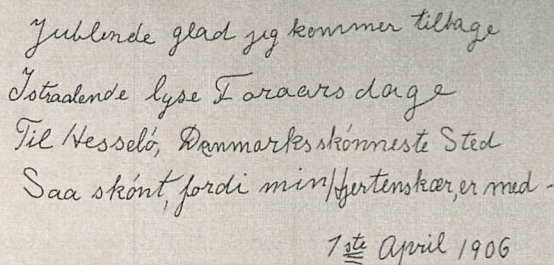 Jublende glad jeg kommer tilbage
Istraalende lyse Foraarsdage
Til Hesseló, Danmarks skónneste Sted
Saa skónt, fordi min Hjertenskær, er med -
1ste April 1906